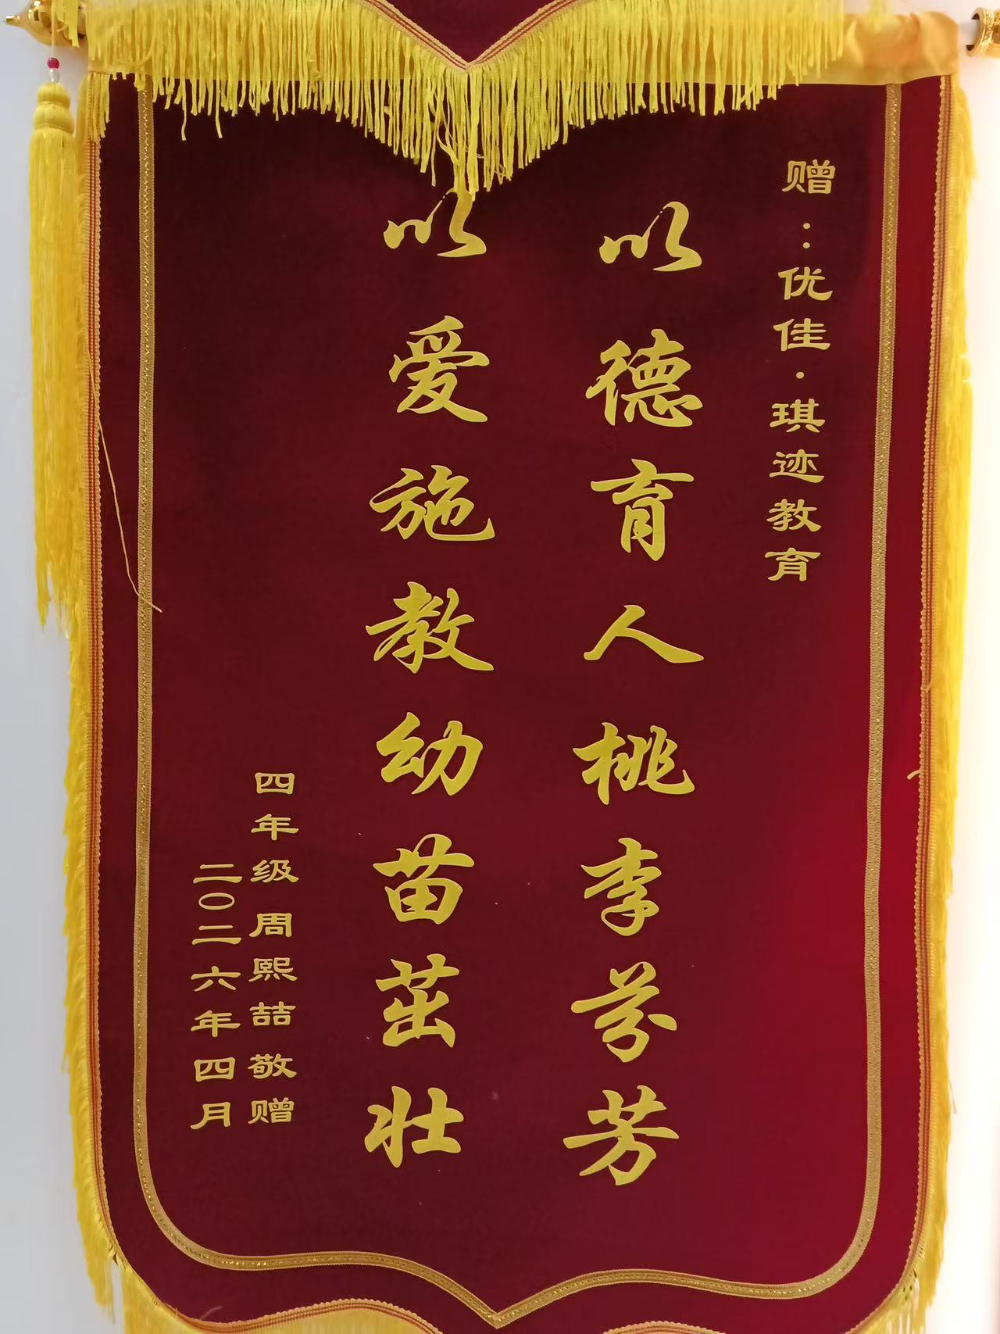 赠：优佳·琪迹教育
以德育人桃李芬芳
以爱施教幼苗茁壮
四年级周熙喆敬赠
二〇二六年四月